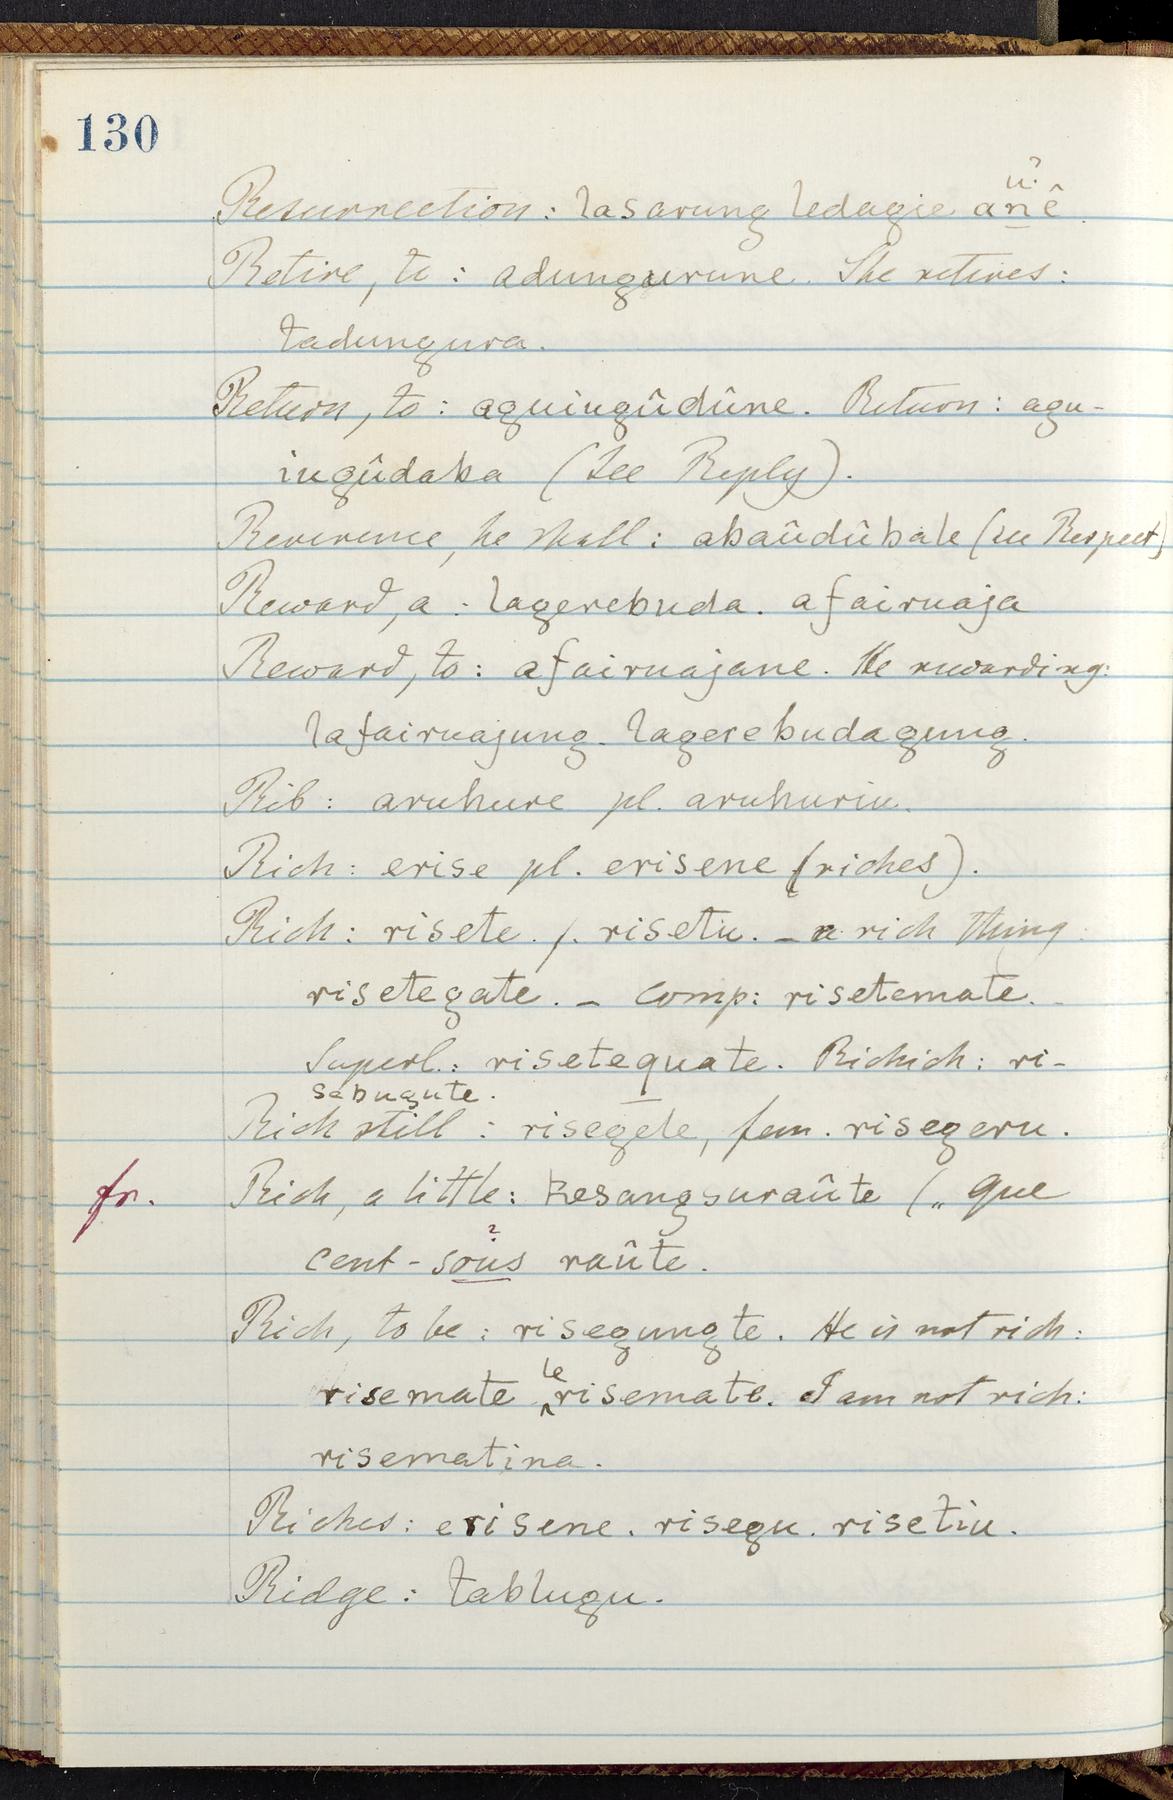 130
u?
Resurrection: lasarung ledagie anê
Retire, to: adungurune. She retires:
tadungura.
Return, to: aguiugûdûne. Return: agu-
iugûdaba (See Reply).
Reverence, he shall: abaûdûbale (see Respect)
Reward, a: lagerebuda. afairuaja
Reward, to: afairuajane. He rewarding:
lafairuajung. lagerebudagung.
Rib: aruhure pl. aruhuriu.
Rich: erise pl. erisene (riches).
Rich: risete. f. risetu. - a rich thing
risetegate. - Comp: risetemate. -
Superl.: risetequate. Richich: ri-
sebugute.
Rich still: risegele, fem. risegeru.
fr. Rich, a little: kesangsuraûte („ que
?
cent-sous raûte.
Rich, to be: risegungte. He is not rich:
le
risemate ^risemate. I am not rich:
risematina.
Riches: erisene. risegu. risetiu.
Ridge: tablugu.